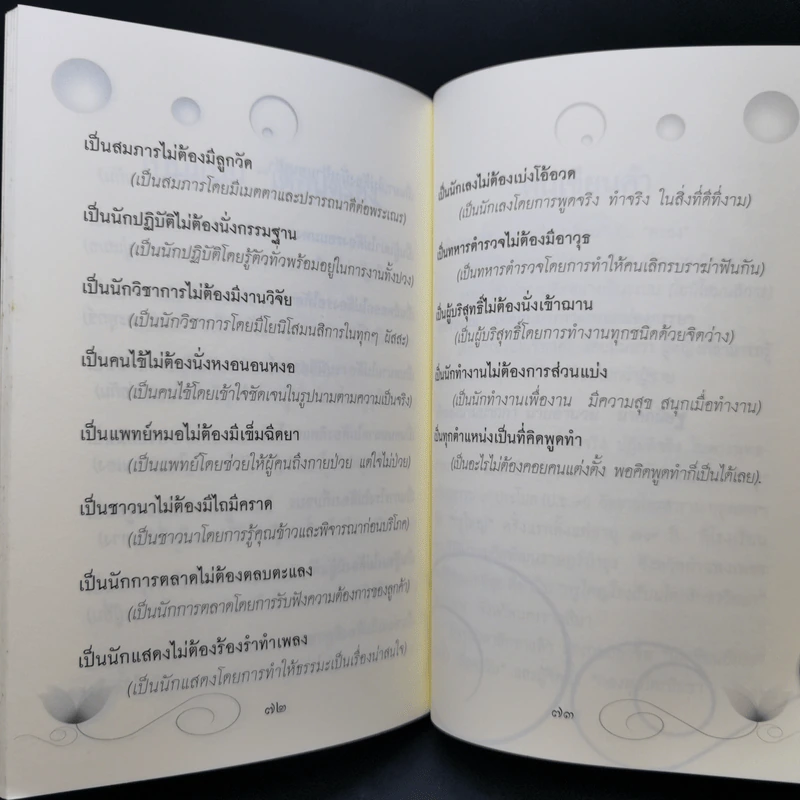 เป็นสมภารไม่ต้องมีลูกวัด
(เป็นสมภารโดยมีเมตตาและปรารถนาดีต่อพระเณร)
เป็นนักปฏิบัติไม่ต้องนั่งกรรมฐาน
(เป็นนักปฏิบัติโดยรู้ตัวทั่วพร้อมอยู่ในการงานทั้งปวง)
เป็นนักวิชาการไม่ต้องมีงานวิจัย
(เป็นนักวิชาการโดยมีโยนิโสมนสิการในทุกๆ ผัสสะ)
เป็นคนไข้ไม่ต้องนั่งหงอนอนหงอ
(เป็นคนไข้โดยเข้าใจชัดเจนในรูปนามตามความเป็นจริง)
เป็นแพทย์หมอไม่ต้องมีเข็มฉีดยา
(เป็นแพทย์โดยช่วยให้ผู้คนถึงกายป่วย แต่ใจไม่ป่วย)
เป็นชาวนาไม่ต้องมีไถมีคราด
(เป็นชาวนาโดยการรู้คุณข้าวและพิจารณาก่อนบริโภค)
เป็นนักการตลาดไม่ต้องตลบตะแลง
(เป็นนักการตลาดโดยการรับฟังความต้องการของลูกค้า)
เป็นนักแสดงไม่ต้องร้องรำทำเพลง
(เป็นนักแสดงโดยการทำให้ธรรมะเป็นเรื่องน่าสนใจ)
๗๒
เป็นนักเลงไม่ต้องเบ่งโอ้อวด
(เป็นนักเลงโดยการพูดจริง ทำจริง ในสิ่งที่ดีที่งาม)
เป็นทหารตำรวจไม่ต้องมีอาวุธ
(เป็นทหารตำรวจโดยการทำให้คนเลิกรบราฆ่าฟันกัน)
เป็นผู้บริสุทธิ์ไม่ต้องนั่งเข้าฌาน
(เป็นผู้บริสุทธิ์โดยการทำงานทุกชนิดด้วยจิตว่าง)
เป็นนักทำงานไม่ต้องการส่วนแบ่ง
(เป็นนักทำงานเพื่องาน มีความสุข สนุกเมื่อทำงาน)
เป็นทุกตำแหน่งเป็นที่คิดพูดทำ
(เป็นอะไรไม่ต้องคอยคนแต่งตั้ง พอคิดพูดทำก็เป็นได้เลย).
๗๓